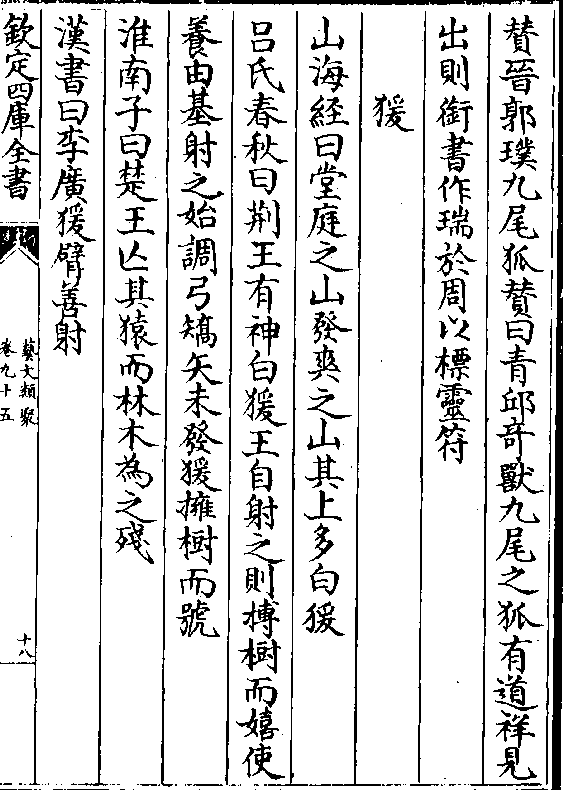 賛晉郭璞九尾狐賛曰青邱竒獸九尾之狐有道祥見
出則銜書作瑞於周以標靈符
猨
山海經曰堂庭之山發爽之山其上多白猨
吕氏春秋曰荆王有神白猨王自射之則搏樹而嬉使
養由基射之始調弓矯矢未發猨擁樹而號
淮南子曰楚王亾其猿而林木為之殘
漢書曰李廣猨臂善射
欽定四庫全書
藝文類聚
卷九十五
十八